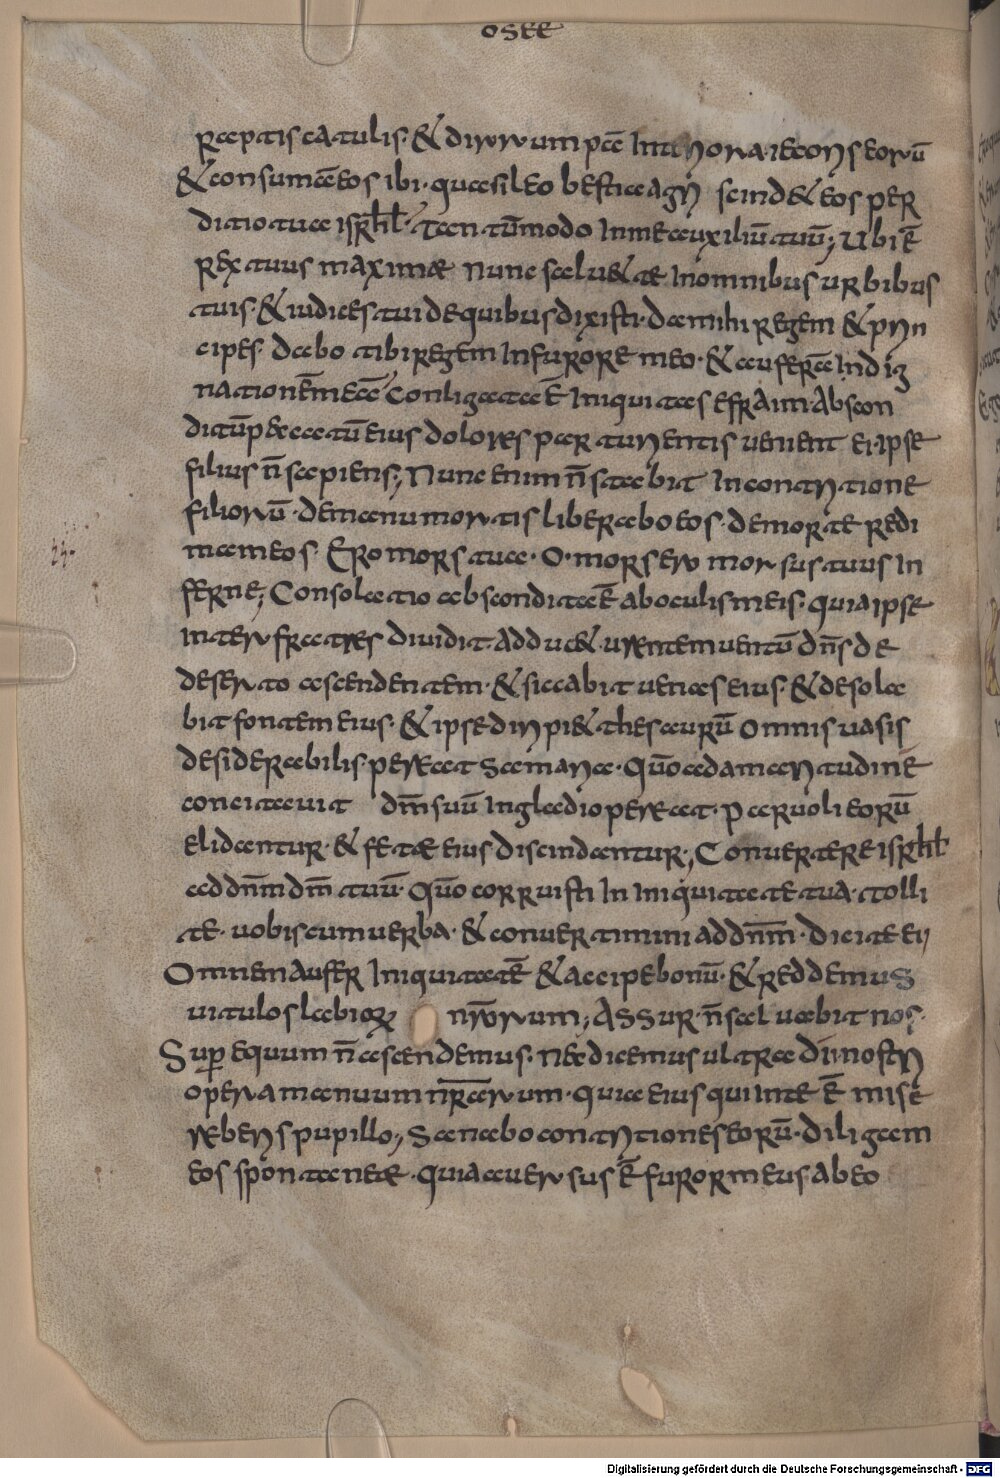 OSEE
raptis catulis · & dirrvum pcē Interiora iecoris eorū
& consumā eos ibi · quasi leo bestia agri scind& eos per
ditio tua isrhl · Tantūmodo In me auxiliū tuū; Ubi ē
rex tuus maximae Nunc salu& te In omnibus urbibus
tuis · & iudices tui de quibus dixisti · da mihi regem & prin
cipes · dabo tibi regem In furore meo · & auferā In dig
nationē mea Conligata ē Iniquitas efraim · Abscon
ditū peccatū eius dolores parturientis venient ei · ipse
filius n̄ sapiens; Nunc enim n̄ stabit In contritione
filiorū · de manu mortis liberabo eos · de morte redi
mam eos · Ero mors tua · O · mors ero morsus tuus In
ferne; Consolatio abscondita ē ab oculis meis · quia ipse
inter fratres dividit · adduc& urentem ventū dn̄s de
deserto ascendentem · & siccabit venas eius · & desola
bit fontem eius · & ipse diripi& thesaurū omnis vasis
desiderabilis · pereat Samaria · Qūo ad amaritudinē
concitavit dm̄ suū In gladio pereat · parvoli eorū
elidantur · & fetae eius discindantur; Convertere isrhl
ad dn̄m dm̄ tuū · Qūo corruisti In iniquitate tua · tolli
te · vobiscum verba · & convertimini ad dn̄m · dicite ei
Omnem aufer Iniquitatē & accipe bonū · & reddemus
vitulos labiorꝝ nr̄orum; Assur · n̄ salvabit nos ·
Super equum n̄ ascendemus · Nec dicemus ultra dii nostri
opera manuum nr̄arum · quia eius qui In te ē mise
reberis pupillo; Sanabo contritiones eorū · diligam
eos spontanee · quia aversus ē furor meus ab eo
Digitalisierung gefördert durch die Deutsche Forschungsgemeinschaft - DFG